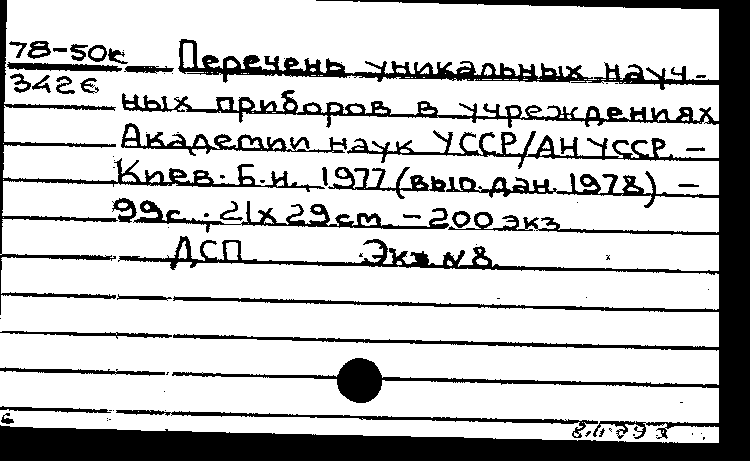 78-50к Перечень уникальных науч-
3426
ных приборов в учреждениях
Академии наук УССР/АН УССР. –
Киев. Б.и., 1977 (вып.дан. 1978). –
99с.; 21х29см. – 200 экз
ДСП Экз № 8